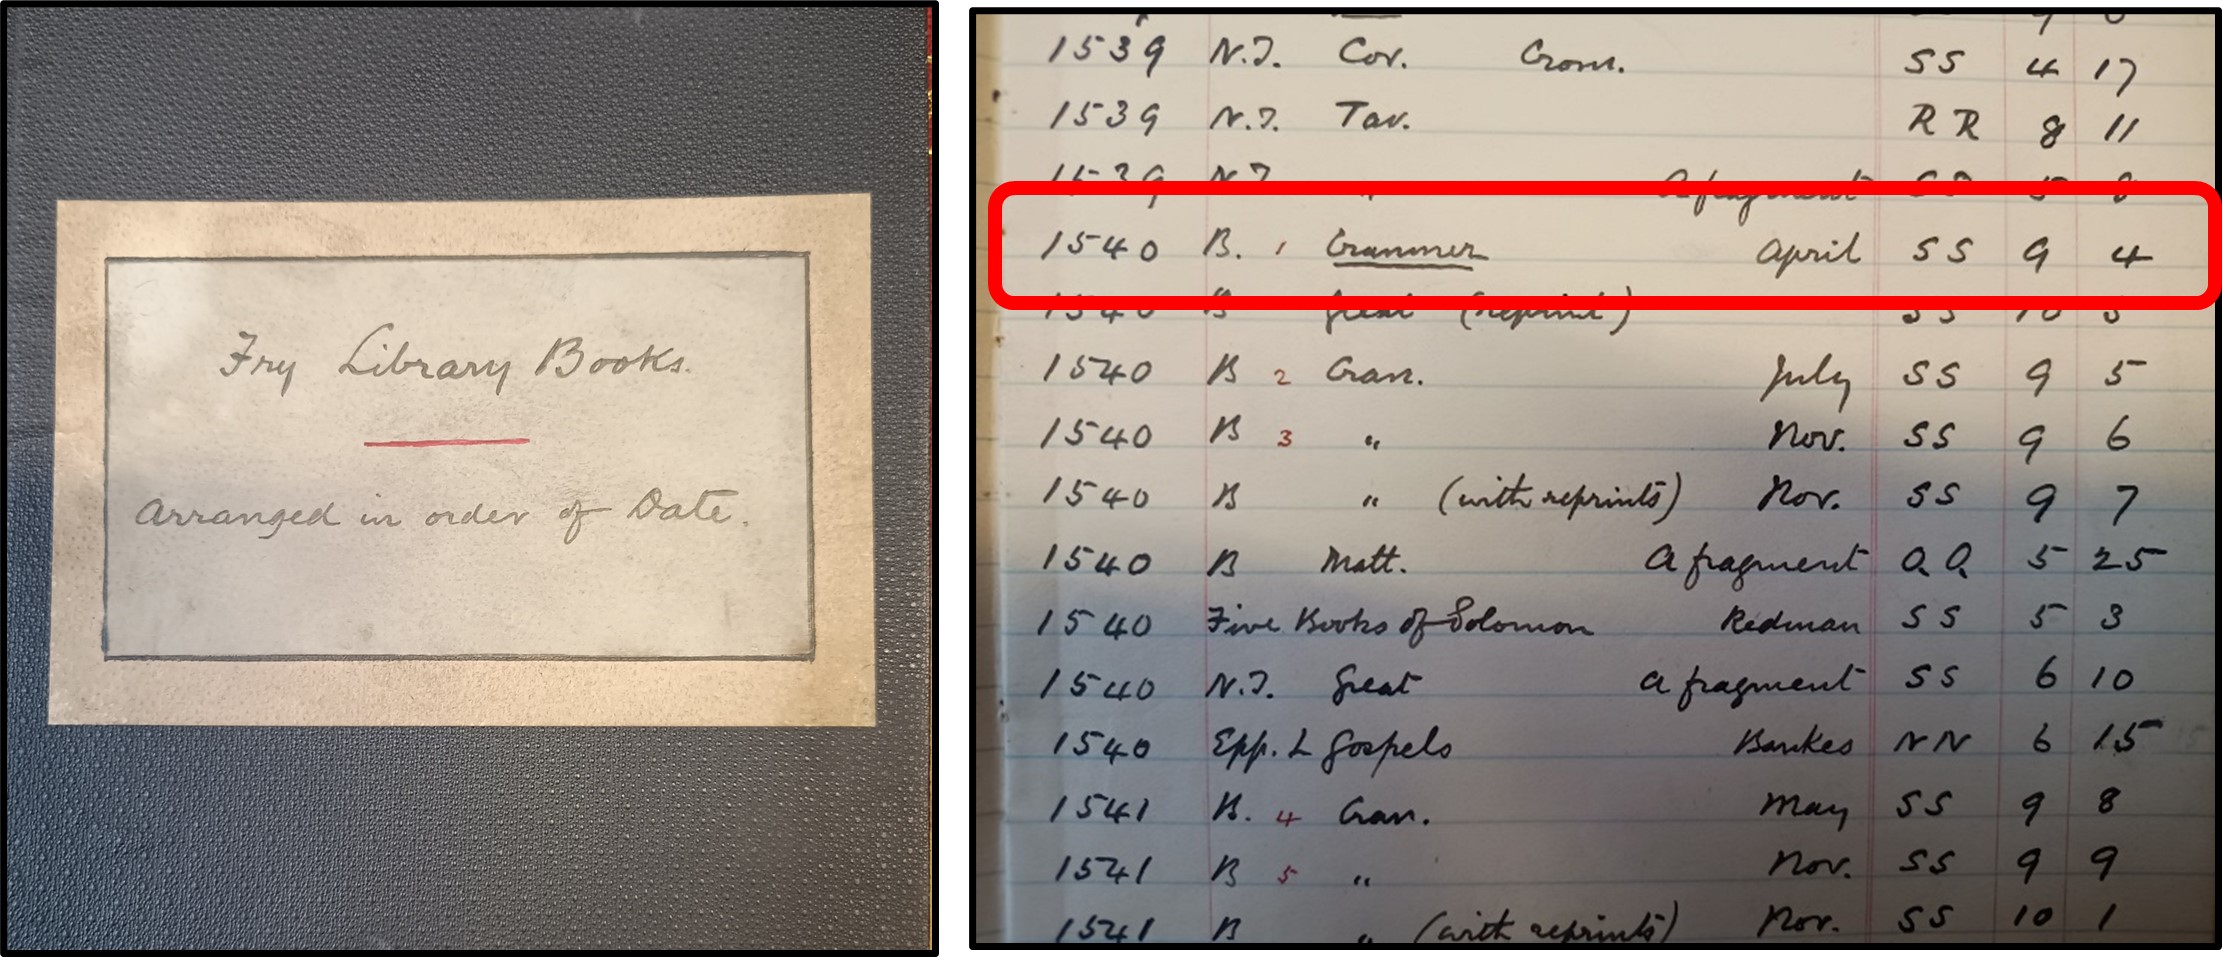 Fry Library Books.
Arranged in order of Date.
1539 N.T. Cov. Crom. SS 4 17
1539 N.T. Tav. RR 8 11
1539 N.T. " A fragment 5 8
1540 B. 1 Cranmer April SS 9 4
1540 B Great (reprint) SS 10 5
1540 B 2 Cran. July SS 9 5
1540 B 3 " Nov. SS 9 6
1540 B " (with reprints) Nov. SS 9 7
1540 B Matt. A fragment QQ 5 25
1540 Five Books of Solomon Redman SS 5 3
1540 N.T. Great A fragment SS 6 10
1540 Epp. & Gospels Bankes NN 6 15
1541 B. 4 Cran. May SS 9 8
1541 B 5 " Nov. SS 9 9
1541 B " (with reprints) Nov. SS 10 1